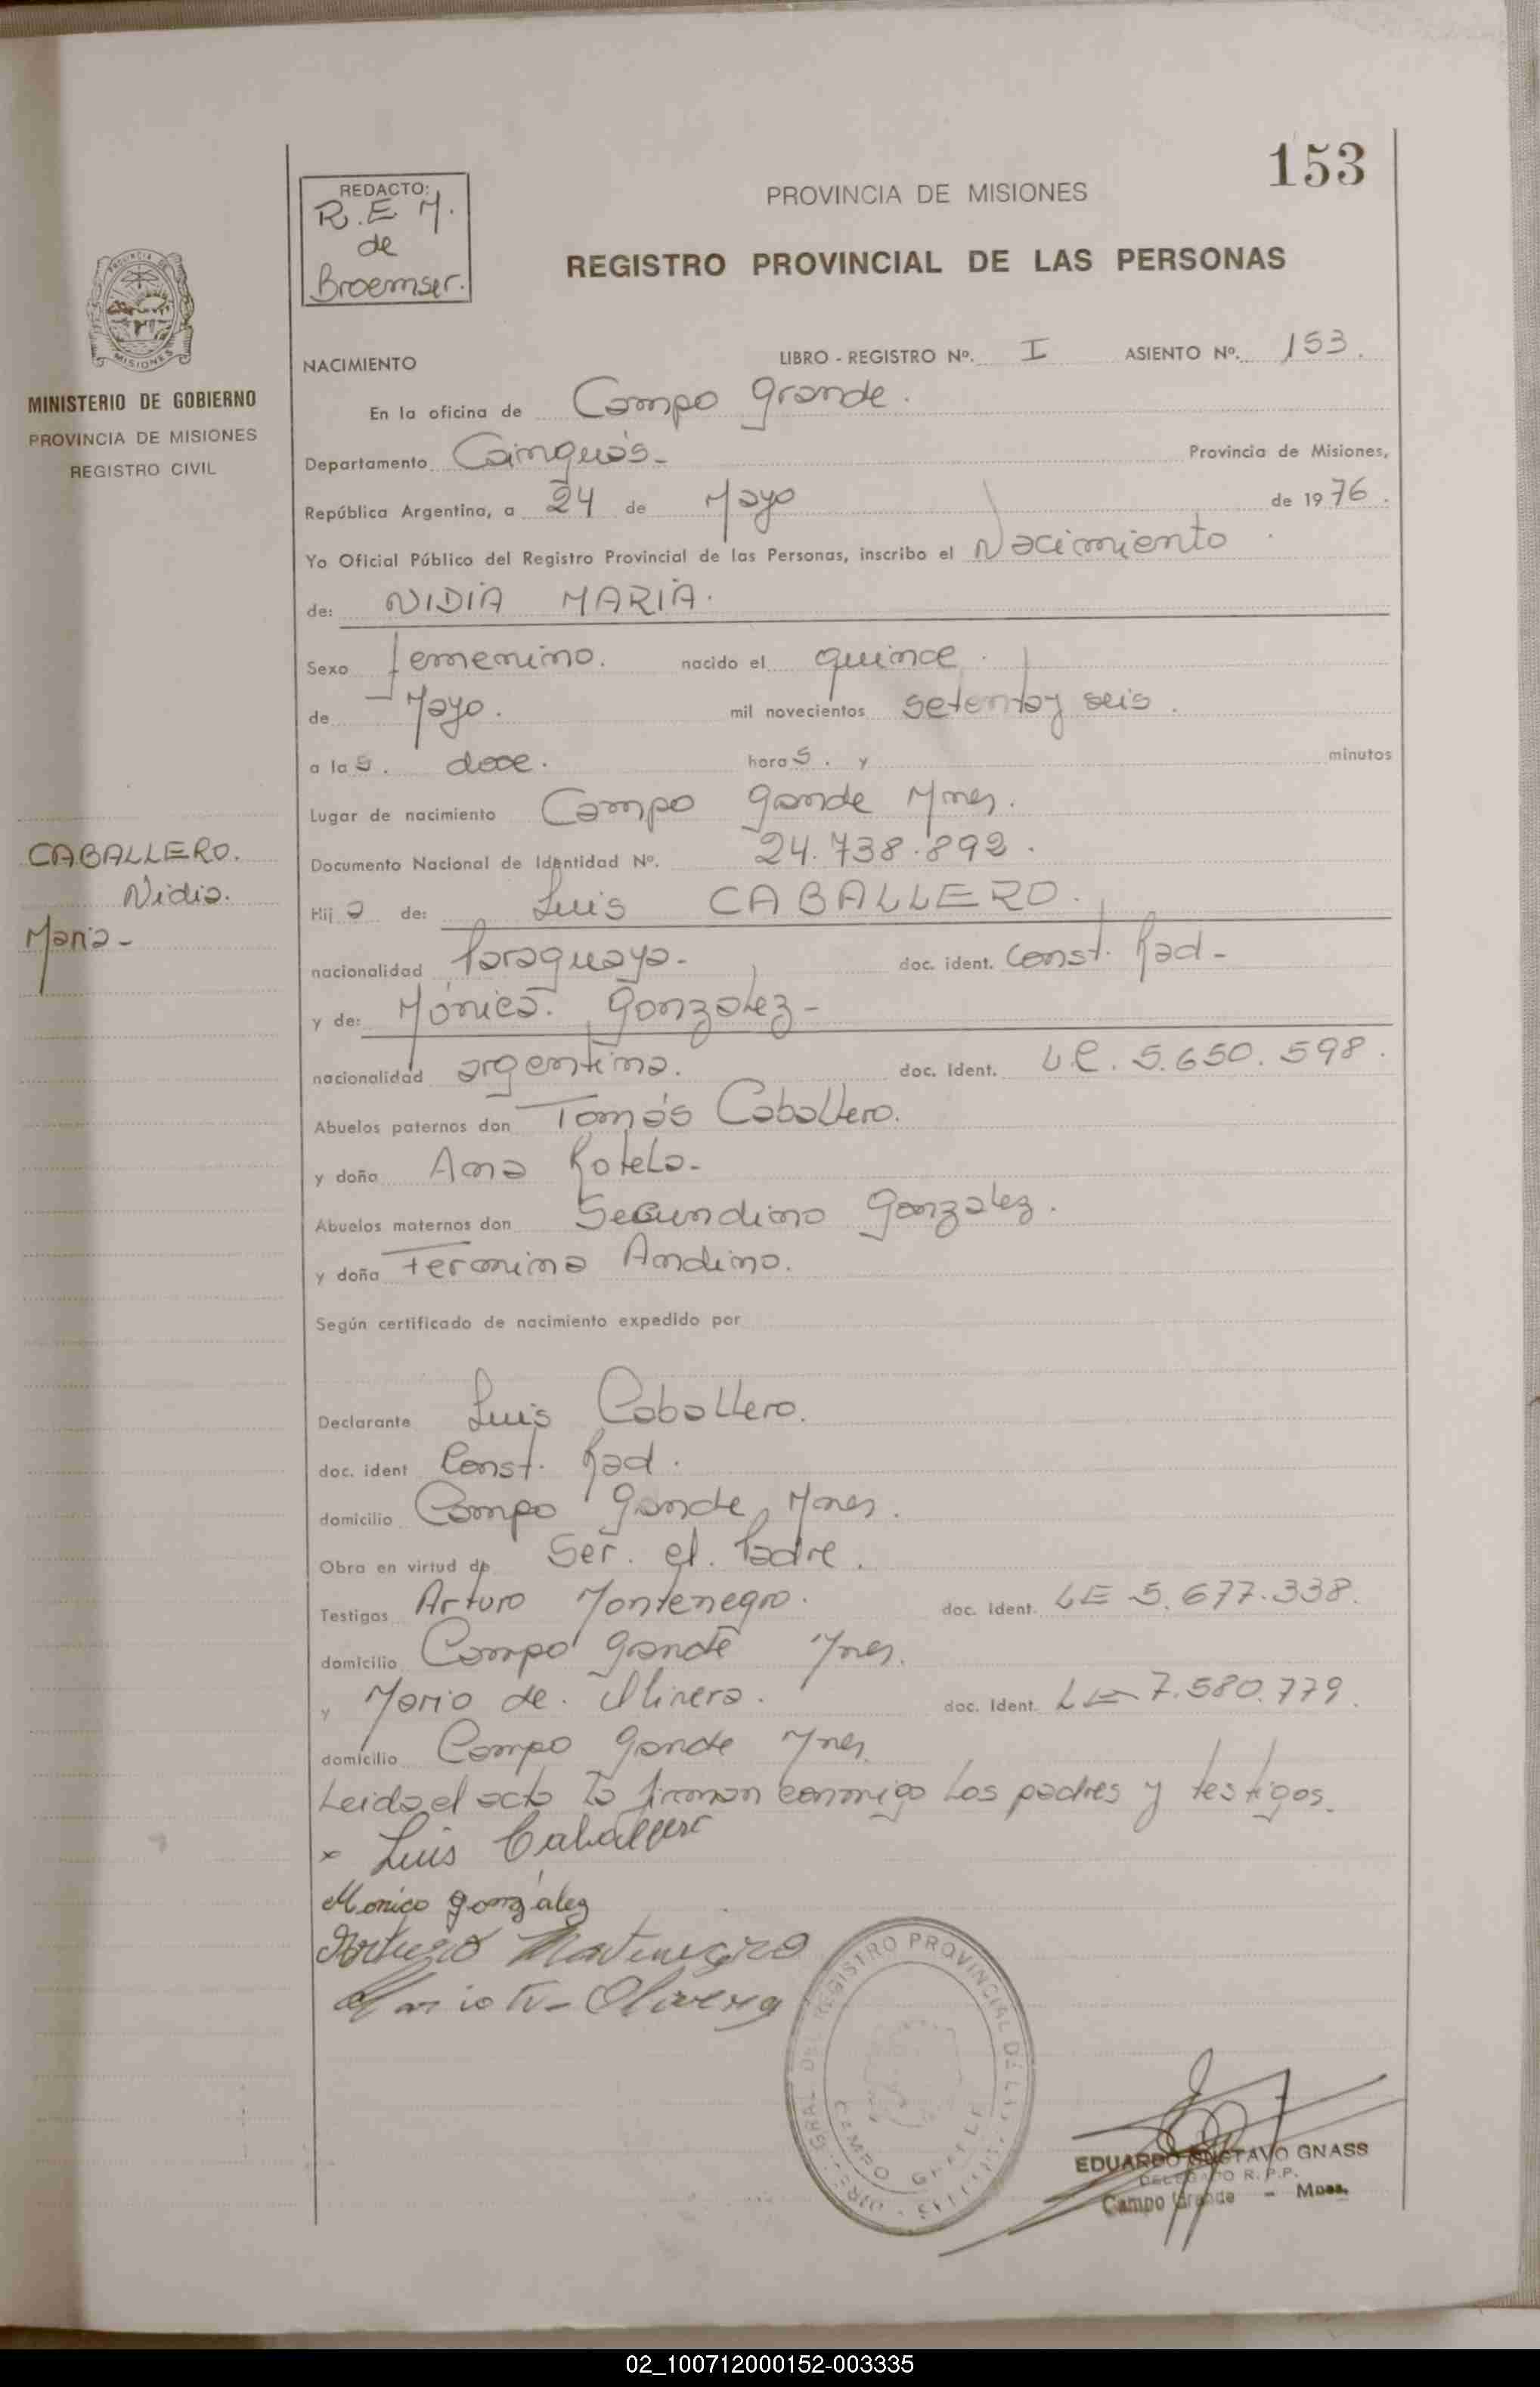 153
REDACTO:
R.E.M.
de
Broemser.
PROVINCIA DE MISIONES
REGISTRO PROVINCIAL DE LAS PERSONAS
MISIONES
MINISTERIO DE GOBIERNO
PROVINCIA DE MISIONES
REGISTRO CIVIL
NACIMIENTO LIBRO - REGISTRO Nº. I ASIENTO Nº. 153.
En la oficina de Campo Grande.
Departamento Cainguás- Provincia de Misiones,
República Argentina, a 24 de Mayo de 1976.
Yo Oficial Público del Registro Provincial de las Personas, inscribo el Nacimiento.
de: NIDIA MARIA.
Sexo femenino. nacido el quince.
de Mayo. mil novecientos setentay seis.
a las. doce. horas. y minutos
Lugar de nacimiento Campo Gande Mnes.
Documento Nacional de Identidad Nº. 24.738.892.
CABALLERO.
Nidia.
Maria-
Hija de: Luis CABALLERO.
nacionalidad Paraguaya- doc. ident. Const. Rad-
y de: Mónica. Gonzalez-
nacionalidad argentina. doc. ident. LC. 5.650.598.
Abuelos paternos don Tomás Caballero.
y doña Ana Rotela-
Abuelos maternos don Secundino Gonzalez.
y doña Fermina Andino.
Según certificado de nacimiento expedido por
Declarante Luis Caballero.
doc. ident Const. Rad.
domicilio Campo Gande Mnes.
Obra en virtud de Ser. el. Padre.
Testigos Arturo Montenegro. doc. ident. LE 5.677.338.
domicilio Campo Grande Mnes.
y Mario de. Olivera. doc. ident. LE 7.580.779.
domicilio Campo Gande Mnes.
Leida el acta la firman conmigo los padres y testigos.
x Luis Caballero
Monica gonzalez
Arturo Montenegro
Mario Olivera
REGISTRO PROVINCIAL DE LAS
CAMPO GRANDE
EDUARDO GUSTAVO GNASS
DELEGADO R.P.P.
Campo Grande - Mnes.
02_100712000152-003335